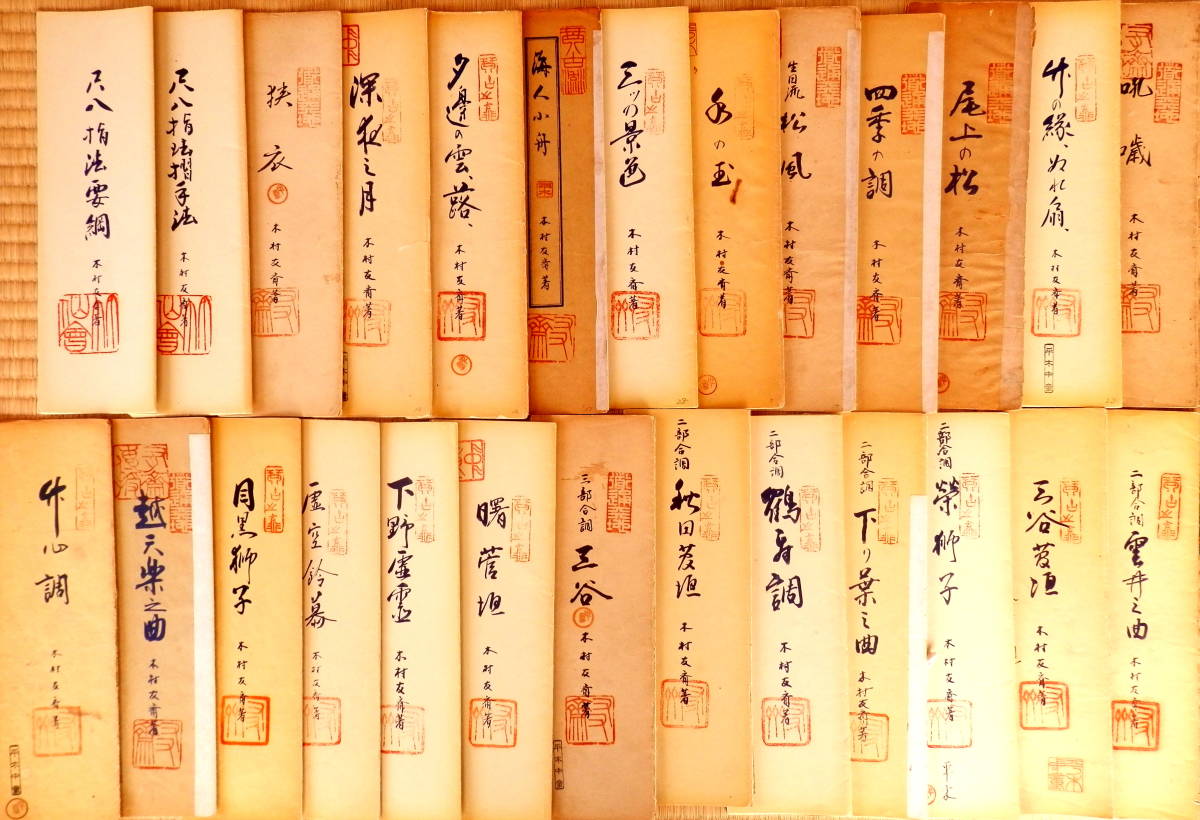 尺八指法要綱
木村友斎著
尺八指法摺手法
木村友斎著
狭衣
木村友斎著
深夜之月
木村友斎著
夕邊の雲、蕗、
木村友斎著
海人小舟
木村友斎著
三ッの景色
木村友斎著
の玉
木村友斎著
生田流
松風
木村友斎著
四季の調
木村友斎著
尾上の松
木村友斎著
竹の縁、ぬれ扇、
木村友斎著
吼噦
木村友斎著
竹心調
木村友斎著
越天楽之曲
木村友斎著
目黒獅子
木村友斎著
虚空鈴慕
木村友斎著
下野虚霊
木村友斎著
曙菅垣
木村友斎著
三部合調
三谷
木村友斎著
二部合調
秋田菅垣
木村友斎著
二部合調
鶴寿調
木村友斎著
二部合調
下り葉之曲
木村友斎著
二部合調
栄獅子
木村友斎著
三谷菅垣
木村友斎著
二部合調
雲井之曲
木村友斎著